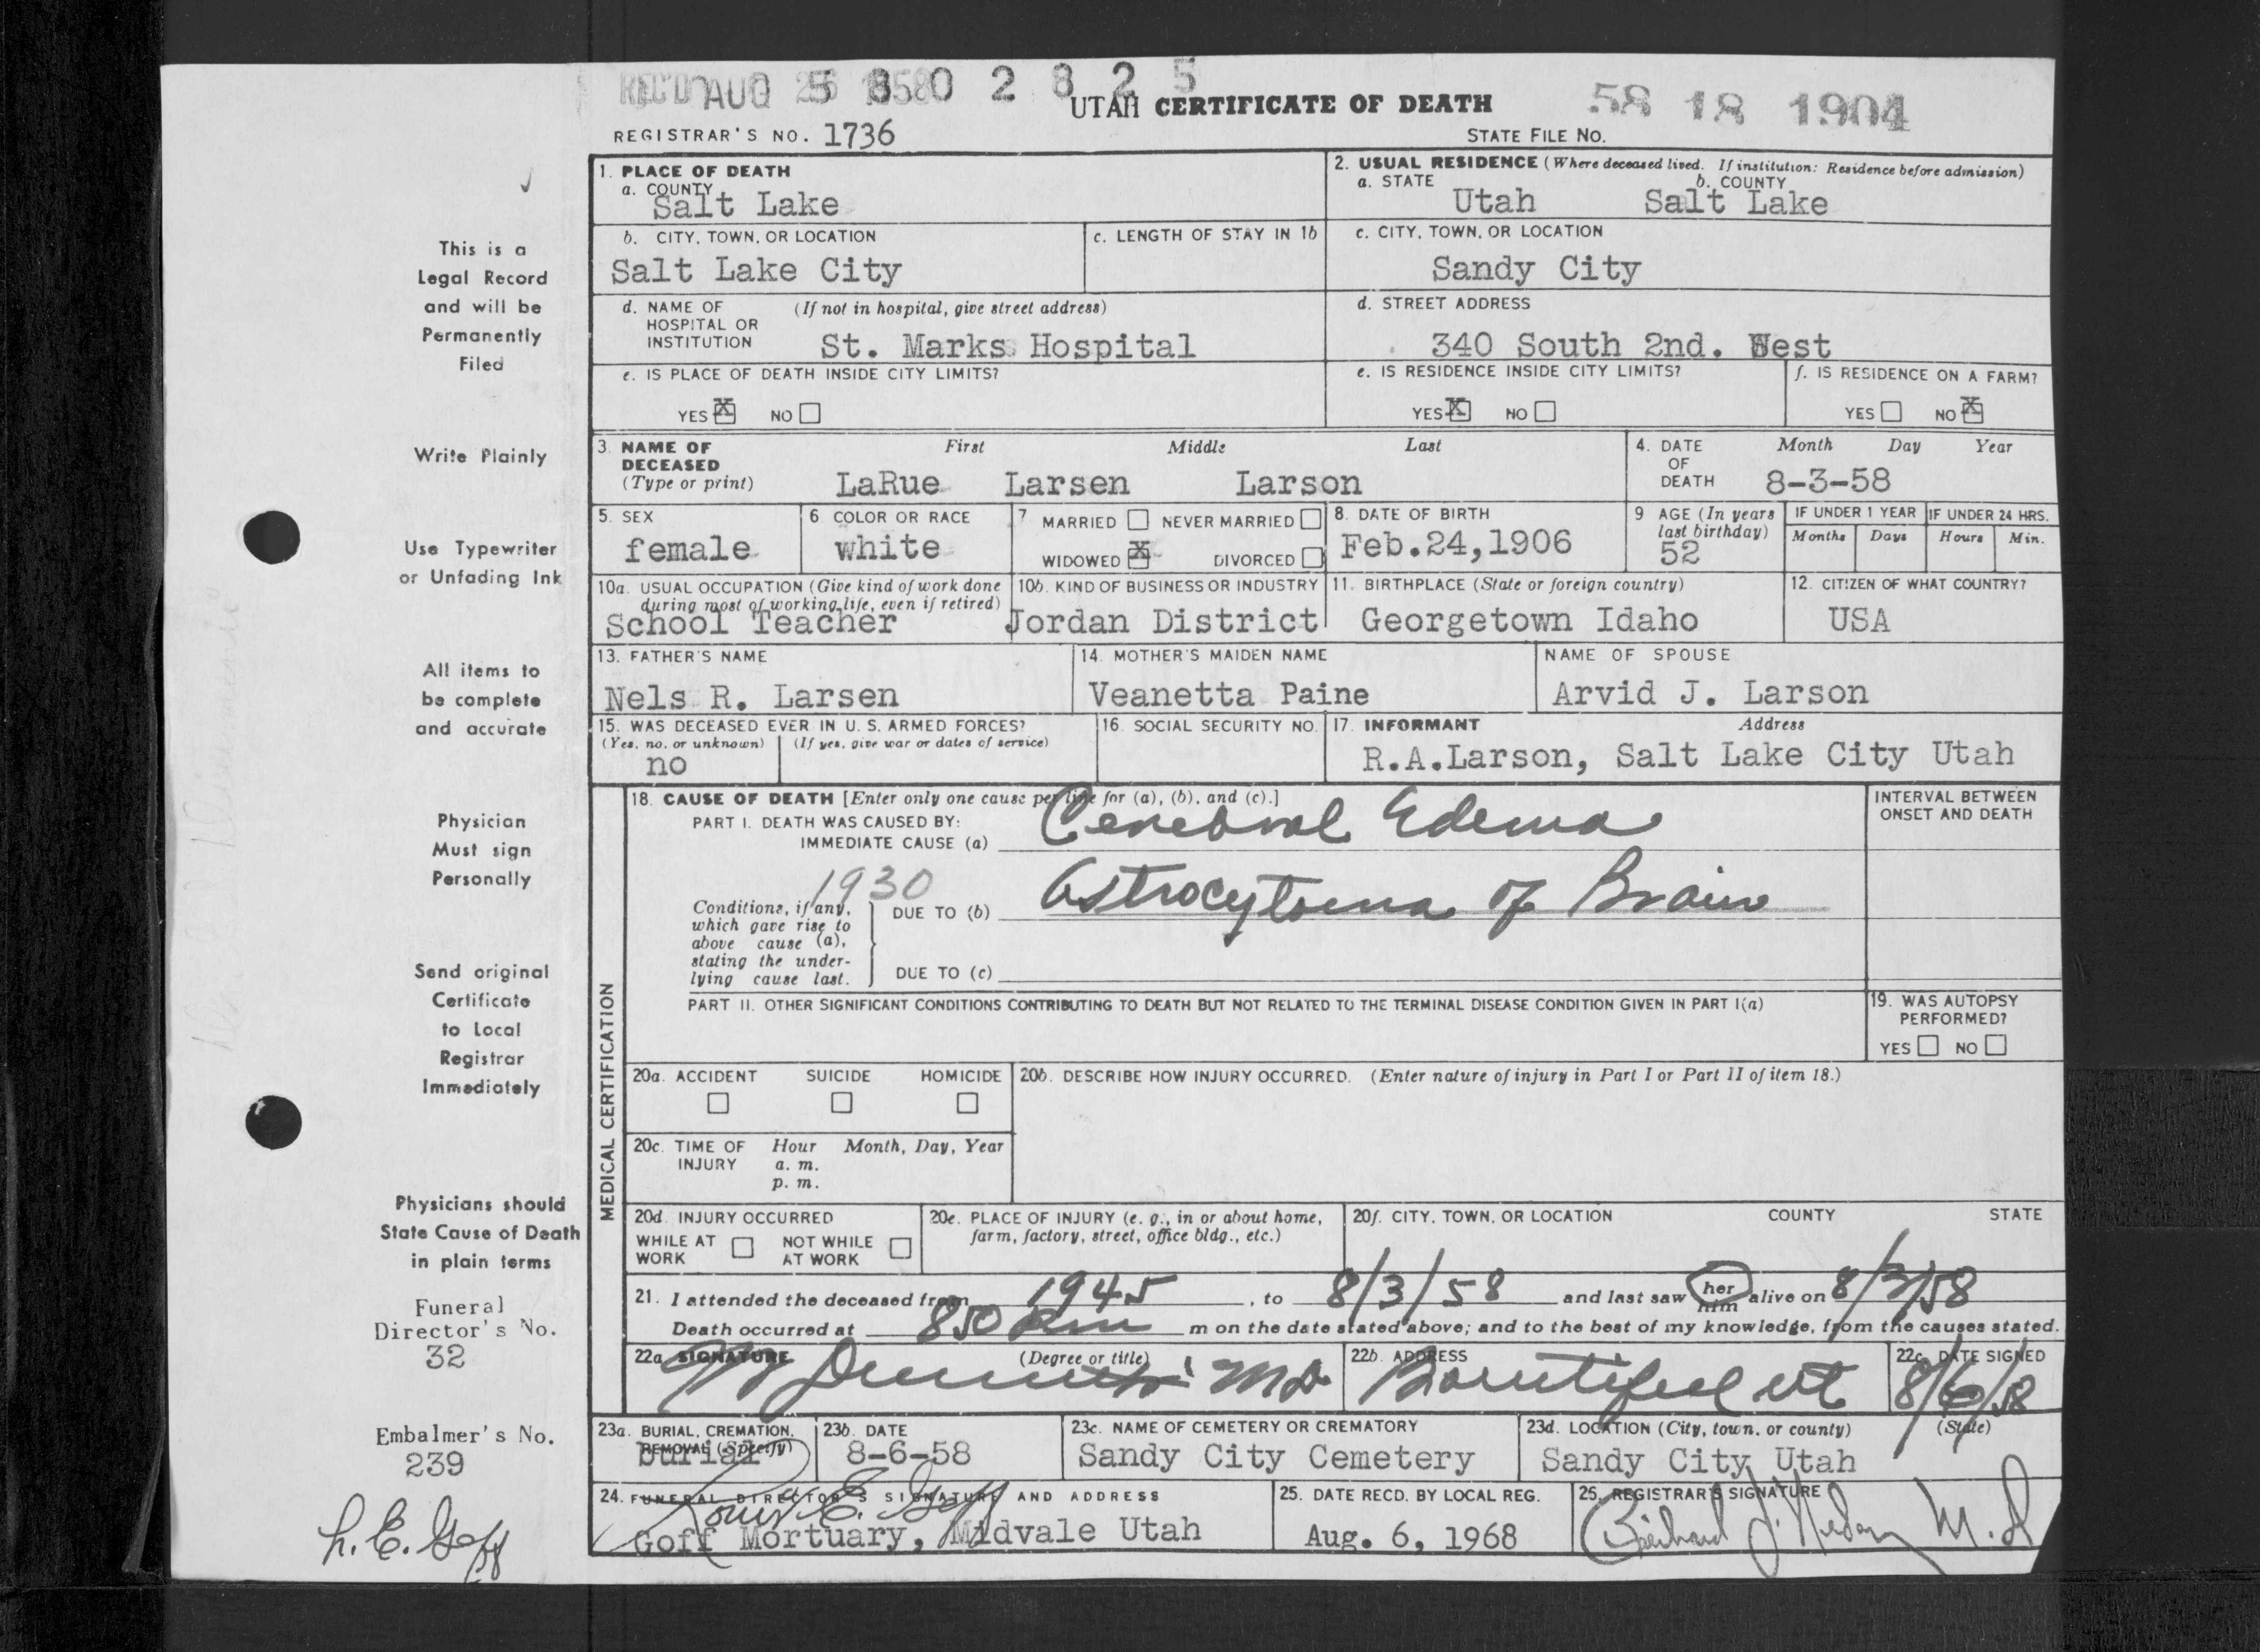 REC'D AUG 26 1958
5 8 0 2 8 2 5
58 18 1904
UTAH CERTIFICATE OF DEATH
REGISTRAR'S NO. 1736
STATE FILE NO.
1. PLACE OF DEATH
a. COUNTY
Salt Lake
2. USUAL RESIDENCE (Where deceased lived. If institution: Residence before admission)
a. STATE b. COUNTY
Utah Salt Lake
b. CITY, TOWN, OR LOCATION
Salt Lake City
c. LENGTH OF STAY IN 1b
c. CITY, TOWN, OR LOCATION
Sandy City
d. NAME OF (If not in hospital, give street address)
HOSPITAL OR
INSTITUTION
St. Marks Hospital
d. STREET ADDRESS
340 South 2nd. West
e. IS PLACE OF DEATH INSIDE CITY LIMITS?
YES X NO
e. IS RESIDENCE INSIDE CITY LIMITS?
YES X NO
f. IS RESIDENCE ON A FARM?
YES NO X
3. NAME OF DECEASED (Type or print)
First Middle Last
LaRue Larsen Larson
4. DATE OF DEATH
Month Day Year
8-3-58
5. SEX
female
6 COLOR OR RACE
white
7 MARRIED NEVER MARRIED
WIDOWED X DIVORCED
8. DATE OF BIRTH
Feb.24,1906
9 AGE (In years last birthday)
52
IF UNDER 1 YEAR
Months Days
IF UNDER 24 HRS.
Hours Min.
10a. USUAL OCCUPATION (Give kind of work done
during most of working life, even if retired)
School Teacher
10b. KIND OF BUSINESS OR INDUSTRY
Jordan District
11. BIRTHPLACE (State or foreign country)
Georgetown Idaho
12. CITIZEN OF WHAT COUNTRY?
USA
13. FATHER'S NAME
Nels R. Larsen
14. MOTHER'S MAIDEN NAME
Veanetta Paine
NAME OF SPOUSE
Arvid J. Larson
15. WAS DECEASED EVER IN U. S. ARMED FORCES?
(Yes, no, or unknown) (If yes, give war or dates of service)
no
16. SOCIAL SECURITY NO.
17. INFORMANT Address
R.A.Larson, Salt Lake City Utah
MEDICAL CERTIFICATION
18. CAUSE OF DEATH [Enter only one cause per line for (a), (b), and (c).]
PART I. DEATH WAS CAUSED BY:
IMMEDIATE CAUSE (a) Cerebral Edema
INTERVAL BETWEEN
ONSET AND DEATH
1930
Conditions, if any,
which gave rise to
above cause (a),
stating the under-
lying cause last.
DUE TO (b) Astrocytoma of Brain
DUE TO (c)
PART II. OTHER SIGNIFICANT CONDITIONS CONTRIBUTING TO DEATH BUT NOT RELATED TO THE TERMINAL DISEASE CONDITION GIVEN IN PART I(a)
19. WAS AUTOPSY
PERFORMED?
YES NO
20a. ACCIDENT SUICIDE HOMICIDE
20b. DESCRIBE HOW INJURY OCCURRED. (Enter nature of injury in Part I or Part II of item 18.)
20c. TIME OF INJURY
Hour Month, Day, Year
a. m.
p. m.
20d. INJURY OCCURRED
WHILE AT WORK NOT WHILE AT WORK
20e. PLACE OF INJURY (e. g., in or about home,
farm, factory, street, office bldg., etc.)
20f. CITY, TOWN, OR LOCATION COUNTY STATE
21. I attended the deceased from 1945, to 8/3/58 and last saw her him alive on 8/3/58
Death occurred at 850 Pm m on the date stated above; and to the best of my knowledge, from the causes stated.
22a. SIGNATURE (Degree or title)
MD
22b. ADDRESS
Bountiful Ut
22c. DATE SIGNED
8/6/58
23a. BURIAL, CREMATION,
REMOVAL (Specify)
burial
23b. DATE
8-6-58
23c. NAME OF CEMETERY OR CREMATORY
Sandy City Cemetery
23d. LOCATION (City, town, or county) (State)
Sandy City Utah
24. FUNERAL DIRECTOR'S SIGNATURE AND ADDRESS
Louis E. Goff
Goff Mortuary, Midvale Utah
25. DATE RECD. BY LOCAL REG.
Aug. 6, 1968
25. REGISTRAR'S SIGNATURE
M.D
This is a
Legal Record
and will be
Permanently
Filed
Write Plainly
Use Typewriter
or Unfading Ink
All items to
be complete
and accurate
Physician
Must sign
Personally
Send original
Certificate
to Local
Registrar
Immediately
Physicians should
State Cause of Death
in plain terms
Funeral
Director's No.
32
Embalmer's No.
239
L.E. Goff